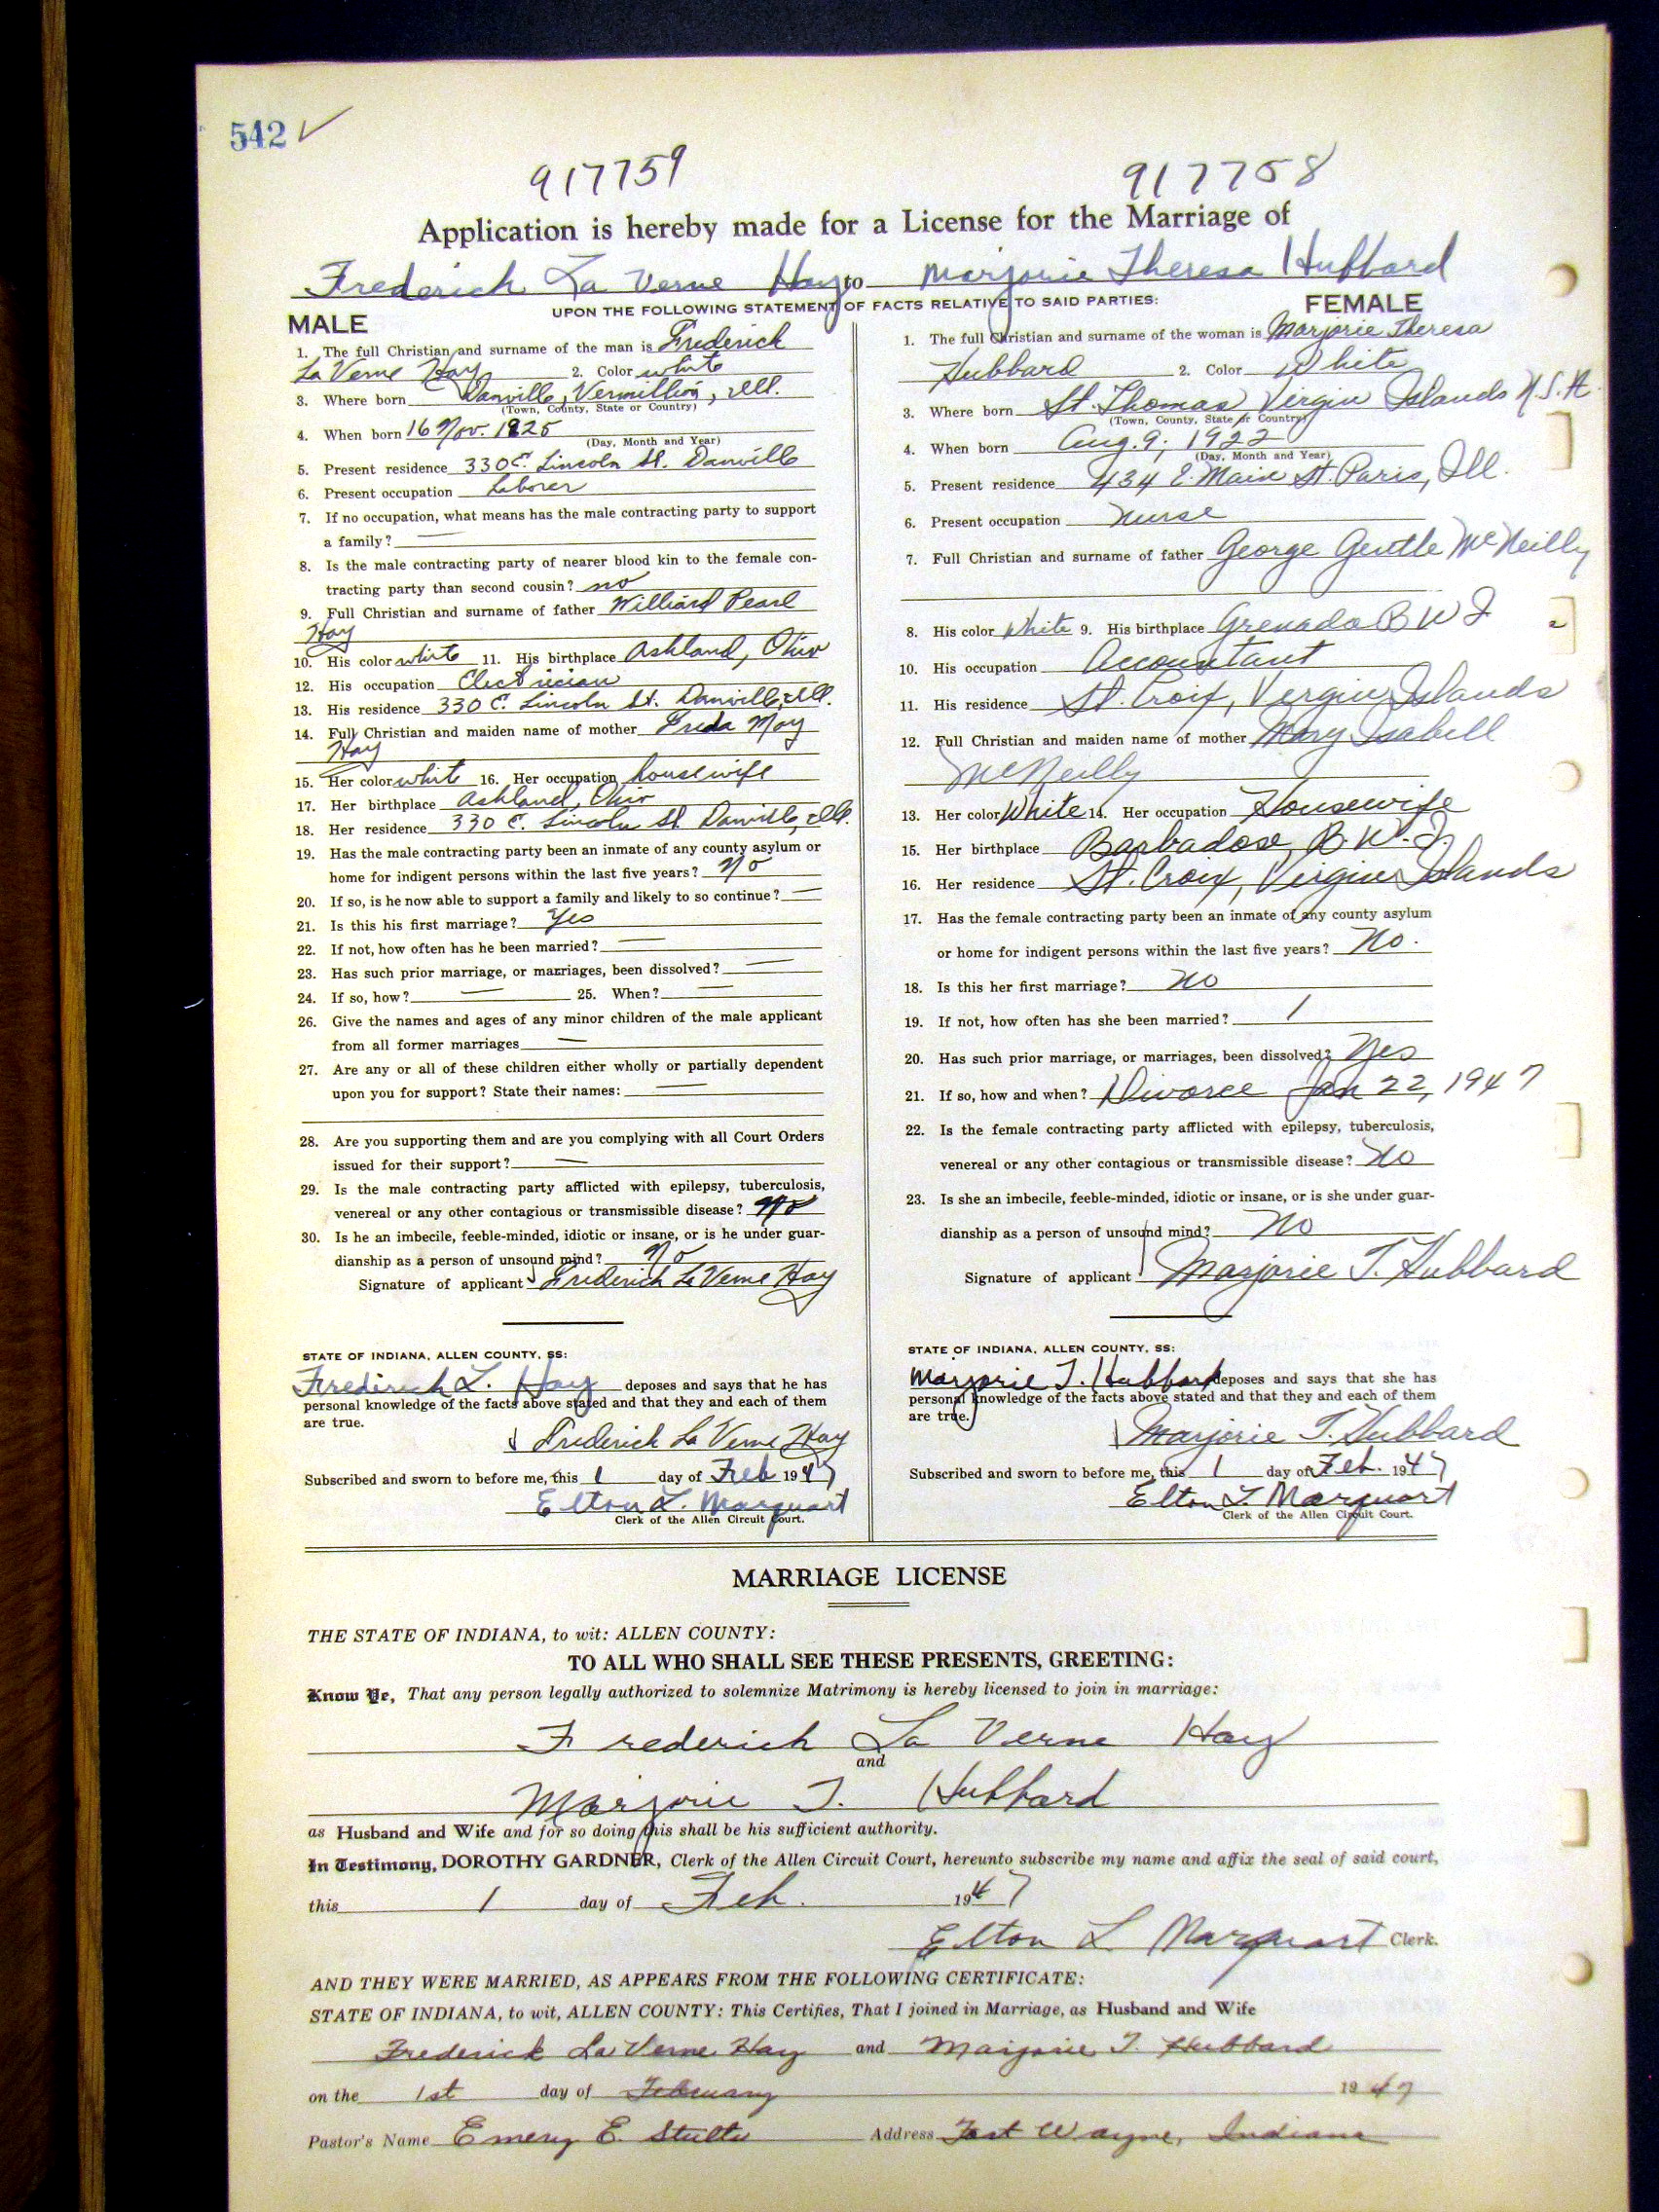 542 ✓
917759 917758
Application is hereby made for a License for the Marriage of
Frederick La Verne Hay to Marjorie Theresa Hubbard
UPON THE FOLLOWING STATEMENT OF FACTS RELATIVE TO SAID PARTIES:
MALE
1. The full Christian and surname of the man is Frederick
La Verne Hay 2. Color white
3. Where born Danville, Vermillion, Ill.
(Town, County, State or Country)
4. When born 16 Nov. 1925
(Day, Month and Year)
5. Present residence 330 E. Lincoln St. Danville
6. Present occupation Laborer
7. If no occupation, what means has the male contracting party to support
a family? —
8. Is the male contracting party of nearer blood kin to the female con-
tracting party than second cousin? no
9. Full Christian and surname of father Williard Pearl
Hay
10. His color white 11. His birthplace Ashland, Ohio
12. His occupation Electrician
13. His residence 330 E. Lincoln St. Danville, Ill.
14. Full Christian and maiden name of mother Freda May
Hay
15. Her color white 16. Her occupation housewife
17. Her birthplace Ashland, Ohio
18. Her residence 330 E. Lincoln St Danville, Ill.
19. Has the male contracting party been an inmate of any county asylum or
home for indigent persons within the last five years? No
20. If so, is he now able to support a family and likely to so continue? —
21. Is this his first marriage? Yes
22. If not, how often has he been married? —
23. Has such prior marriage, or marriages, been dissolved? —
24. If so, how? — 25. When? —
26. Give the names and ages of any minor children of the male applicant
from all former marriages —
27. Are any or all of these children either wholly or partially dependent
upon you for support? State their names: —
28. Are you supporting them and are you complying with all Court Orders
issued for their support? —
29. Is the male contracting party afflicted with epilepsy, tuberculosis,
venereal or any other contagious or transmissible disease? No
30. Is he an imbecile, feeble-minded, idiotic or insane, or is he under guar-
dianship as a person of unsound mind? No
Signature of applicant Frederick La Verne Hay
STATE OF INDIANA, ALLEN COUNTY, SS:
Frederick L. Hay deposes and says that he has
personal knowledge of the facts above stated and that they and each of them
are true.
Frederick La Verne Hay
Subscribed and sworn to before me, this 1 day of Feb 1947
Elton L. Marquart
Clerk of the Allen Circuit Court.
FEMALE
1. The full Christian and surname of the woman is Marjorie Theresa
Hubbard 2. Color White
3. Where born St. Thomas Virgin Islands U.S.A.
(Town, County, State or Country)
4. When born Aug. 9, 1922
(Day, Month and Year)
5. Present residence 434 E. Main St. Paris, Ill.
6. Present occupation Nurse
7. Full Christian and surname of father George Gentle McNeilly
8. His color White 9. His birthplace Grenada B W I
10. His occupation Accountant
11. His residence St. Croix, Virgin Islands
12. Full Christian and maiden name of mother Mary Isabell
McNeilly
13. Her color White 14. Her occupation Housewife
15. Her birthplace Barbadose, B.W.I.
16. Her residence St. Croix, Virgin Islands
17. Has the female contracting party been an inmate of any county asylum
or home for indigent persons within the last five years? No.
18. Is this her first marriage? No
19. If not, how often has she been married? 1
20. Has such prior marriage, or marriages, been dissolved? Yes
21. If so, how and when? Divorce Jan 22, 1947
22. Is the female contracting party afflicted with epilepsy, tuberculosis,
venereal or any other contagious or transmissible disease? No
23. Is she an imbecile, feeble-minded, idiotic or insane, or is she under guar-
dianship as a person of unsound mind? No
Signature of applicant Marjorie T. Hubbard
STATE OF INDIANA, ALLEN COUNTY, SS:
Marjorie T. Hubbard deposes and says that she has
personal knowledge of the facts above stated and that they and each of them
are true.
Marjorie T. Hubbard
Subscribed and sworn to before me, this 1 day of Feb. 1947
Elton L. Marquart
Clerk of the Allen Circuit Court.
MARRIAGE LICENSE
THE STATE OF INDIANA, to wit: ALLEN COUNTY:
TO ALL WHO SHALL SEE THESE PRESENTS, GREETING:
Know Ye, That any person legally authorized to solemnize Matrimony is hereby licensed to join in marriage:
Frederick La Verne Hay
and
Marjorie T. Hubbard
as Husband and Wife and for so doing this shall be his sufficient authority.
In Testimony, DOROTHY GARDNER, Clerk of the Allen Circuit Court, hereunto subscribe my name and affix the seal of said court,
this 1 day of Feb. 1947
Elton L Marquart Clerk.
AND THEY WERE MARRIED, AS APPEARS FROM THE FOLLOWING CERTIFICATE:
STATE OF INDIANA, to wit, ALLEN COUNTY: This Certifies, That I joined in Marriage, as Husband and Wife
Frederick La Verne Hay and Marjorie T. Hubbard
on the 1st day of February 1947
Pastor's Name Emery E. Stultz Address Fort Wayne, Indiana